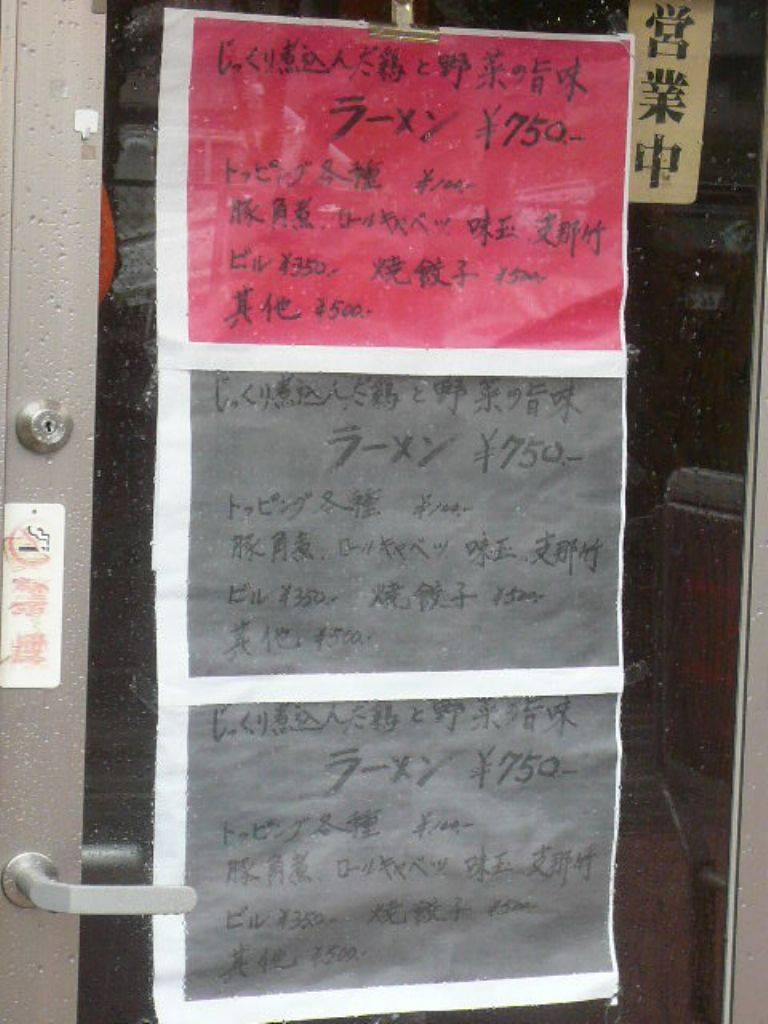 じっくり煮込んだ鶏と野菜の旨味
ラーメン ¥750.-
トッピング各種 ¥100.-
豚角煮、ロールキャベツ 味玉 支那竹
ビル ¥350.- 焼餃子 ¥500.-
其他 ¥500.-
営業中
じっくり煮込んだ鶏と野菜の旨味
ラーメン ¥750.-
トッピング各種 ¥100.-
豚角煮、ロールキャベツ 味玉 支那竹
ビル ¥350.- 焼餃子 ¥500.-
其他 ¥500.-
じっくり煮込んだ鶏と野菜の旨味
ラーメン ¥750.-
トッピング各種 ¥100.-
豚角煮、ロールキャベツ 味玉 支那竹
ビル ¥350.- 焼餃子 ¥500.-
其他 ¥500.-
禁煙